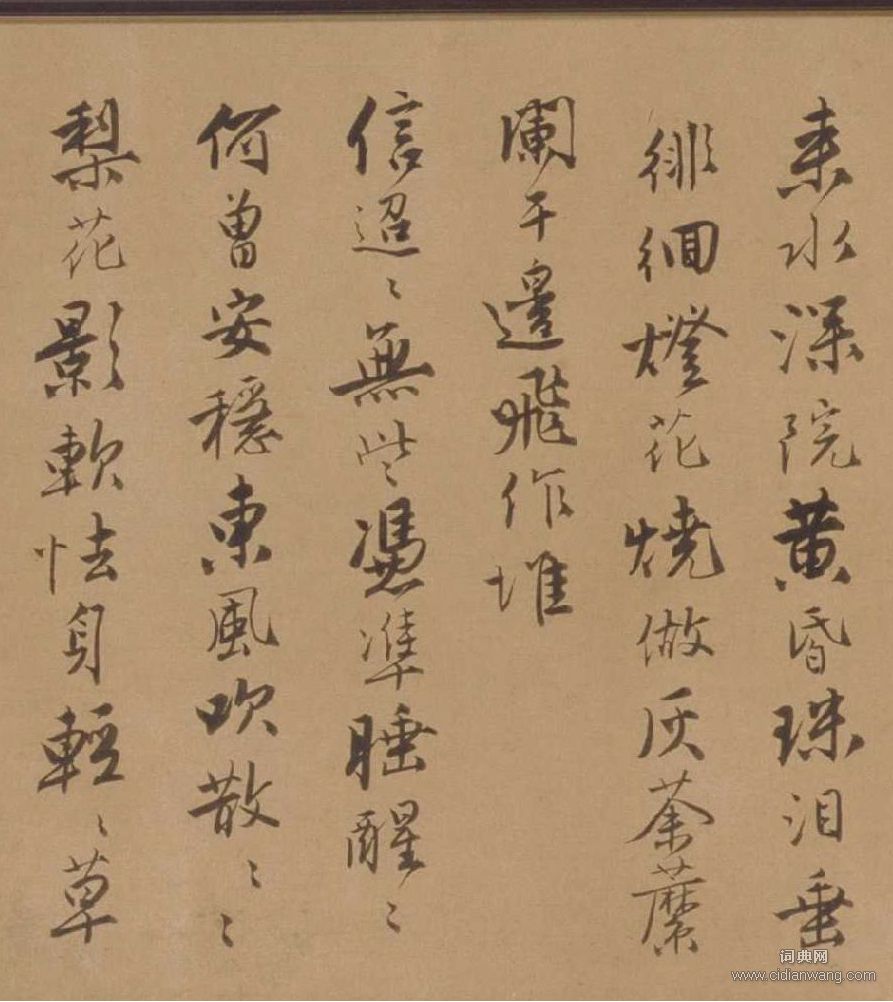 水深院黄昏珠泪垂
徘徊燈花燒做灰荼蘼
瀾干邊飛作堆
信迢ゝ無些ゝ憑準睡醒ゝ
何曾安穩東風吹散ゝゝ
梨花影軟怯身輕ゝ草
词典网
www.cidianwang.com